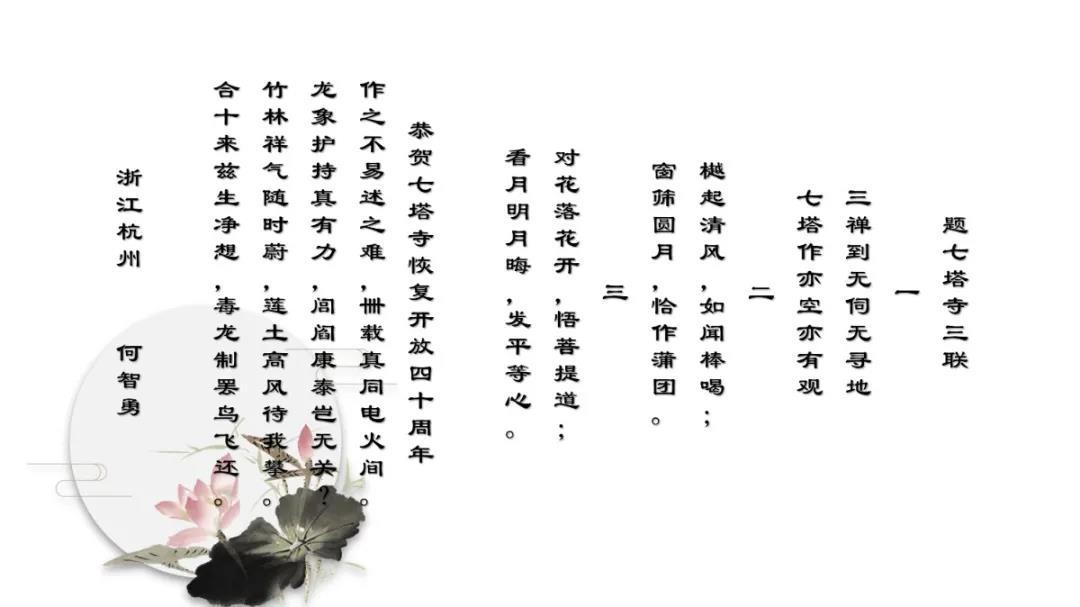 题七塔寺三联
一
三禅到无伺无寻地
七塔作亦空亦有观
二
樾起清风，如闻棒喝；
窗筛圆月，恰作蒲团。
三
对花落花开，悟菩提道；
看月明月晦，发平等心。
恭贺七塔寺恢复开放四十周年
作之不易述之难，卌载真同电火间。
龙象护持真有力，闾阎康泰岂无关？
竹林祥气随时蔚，莲土高风待我攀。
合十来兹生净想，毒龙制罢鸟飞还。
浙江杭州 何智勇